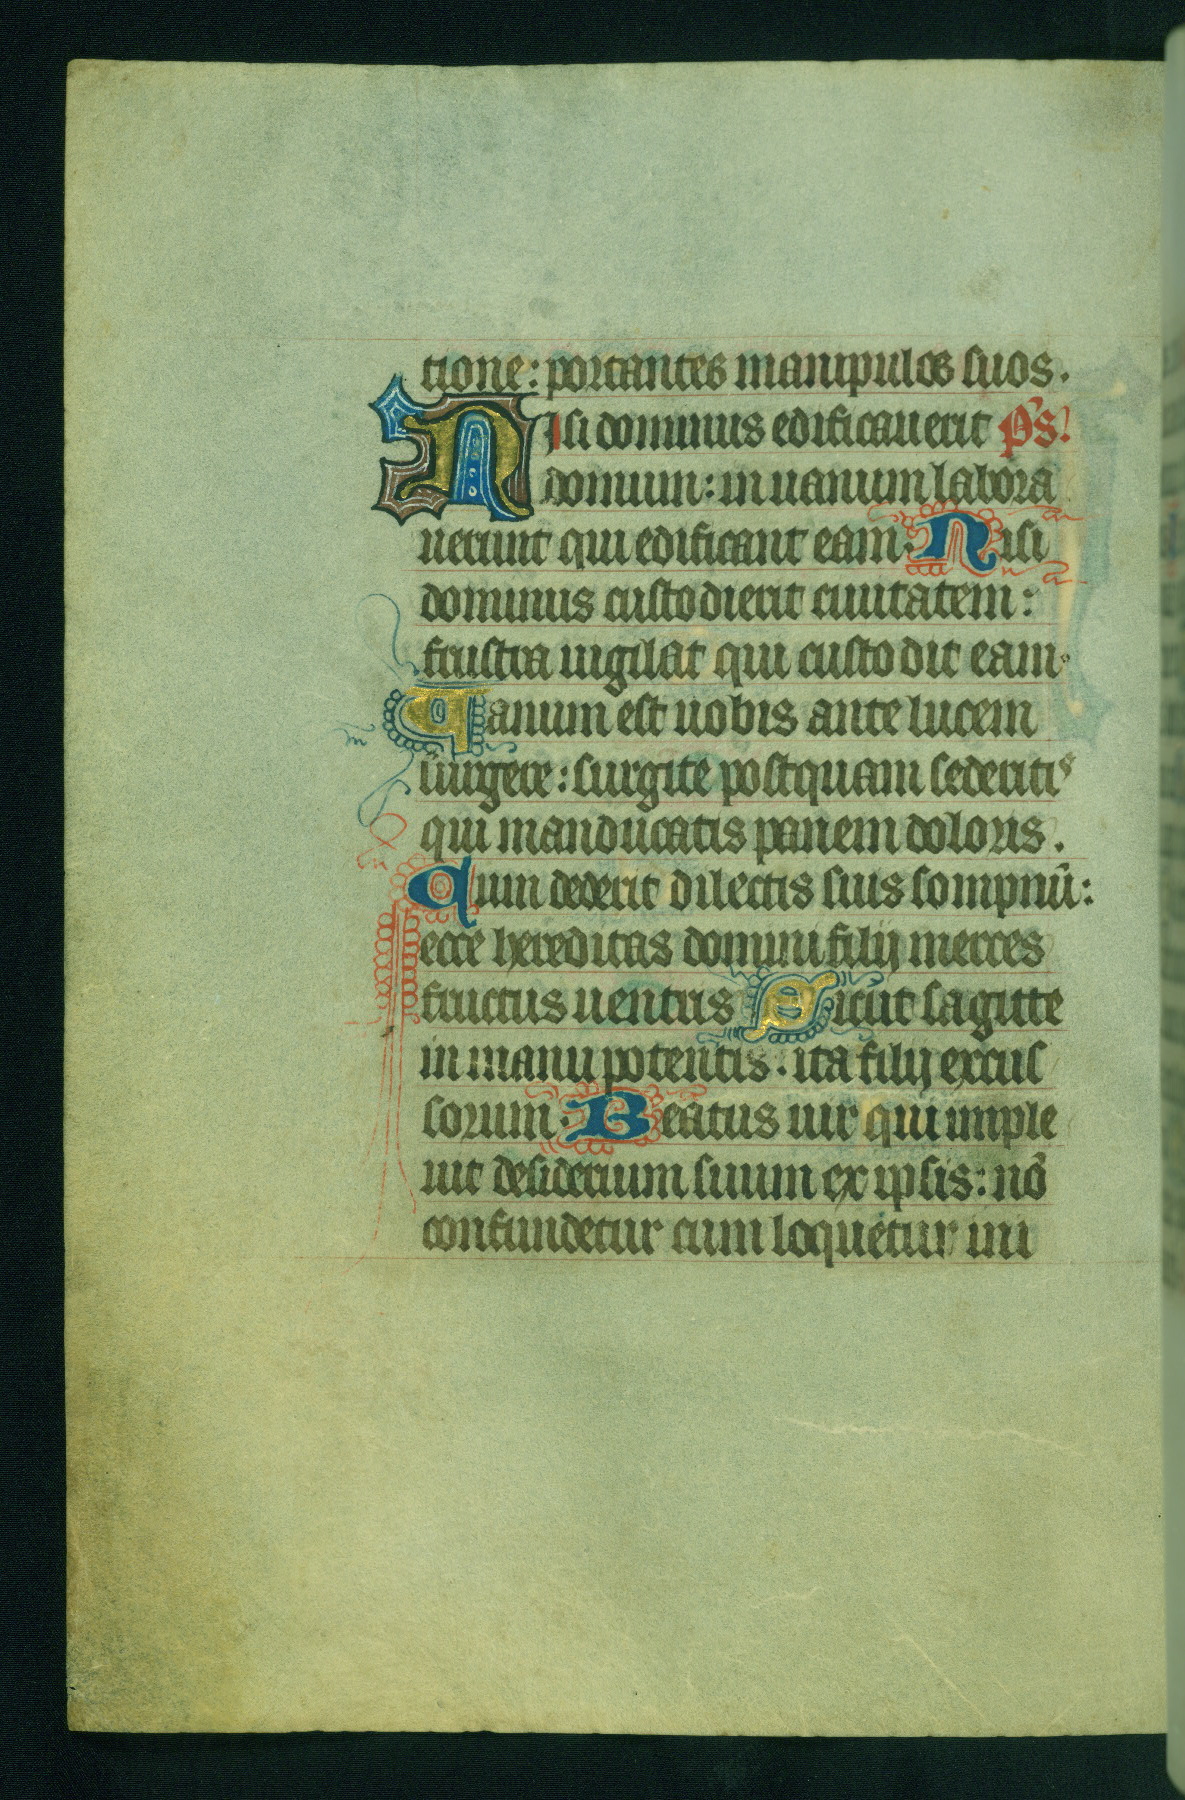 tione: portantes manipulos suos.
Nisi dominus edificauerit p̄s.
domum: in uanum labora
uerunt qui edificant eam. Nisi
dominus custodierit ciuitatem:
frustra uigilat qui custodit eam.
Vanum est uobis ante lucem
surgere: surgite postquam sederitis
qui manducatis panem doloris.
Cum dederit dilectis suis sompnū:
ecce hereditas domini filij merces
fructus uentris Sicut sagitte
in manu potentis. ita filij excus
sorum. Beatus uir qui imple
uit desiderium suum ex ipsis: nō
confundetur cum loquetur ini